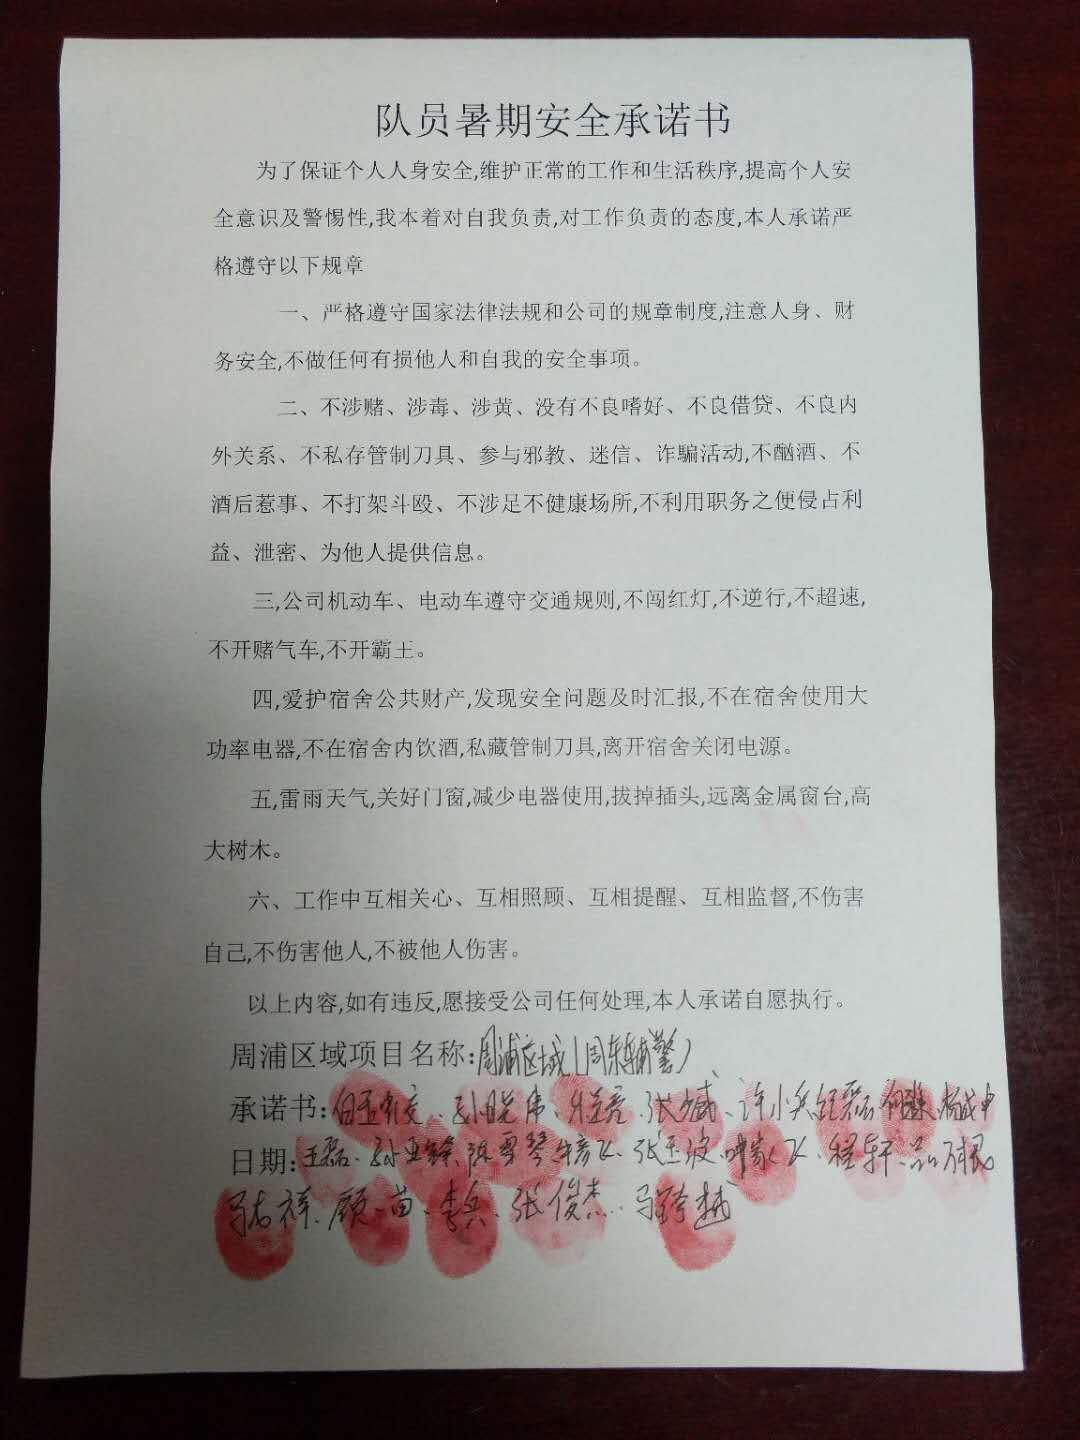 队员暑期安全承诺书
为了保证个人人身安全,维护正常的工作和生活秩序,提高个人安
全意识及警惕性,我本着对自我负责,对工作负责的态度,本人承诺严
格遵守以下规章
一、严格遵守国家法律法规和公司的规章制度,注意人身、财
务安全,不做任何有损他人和自我的安全事项。
二、不涉赌、涉毒、涉黄、没有不良嗜好、不良借贷、不良内
外关系、不私存管制刀具、参与邪教、迷信、诈骗活动,不酗酒、不
酒后惹事、不打架斗殴、不涉足不健康场所,不利用职务之便侵占利
益、泄密、为他人提供信息。
三,公司机动车、电动车遵守交通规则,不闯红灯,不逆行,不超速,
不开赌气车,不开霸王。
四,爱护宿舍公共财产,发现安全问题及时汇报,不在宿舍使用大
功率电器,不在宿舍内饮酒,私藏管制刀具,离开宿舍关闭电源。
五,雷雨天气,关好门窗,减少电器使用,拔掉插头,远离金属窗台,高
大树木。
六、工作中互相关心、互相照顾、互相提醒、互相监督,不伤害
自己,不伤害他人,不被他人伤害。
以上内容,如有违反,愿接受公司任何处理,本人承诺自愿执行。
周浦区域项目名称:周浦区域(周东辅警)
承诺书: 孙晓伟、许小兵
日期:王磊、陈雪琴 张玉波 程轩
马右祥、顾苗、李兵、张俊杰、马跨越